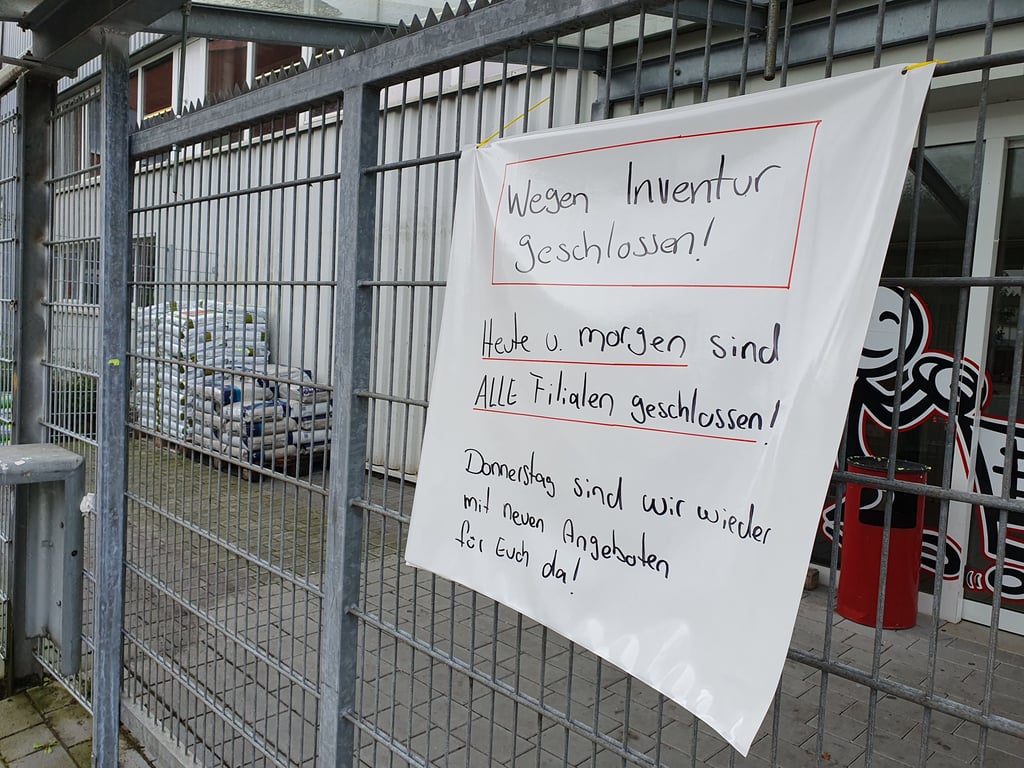 Wegen Inventur
geschlossen!
Heute u. morgen sind
ALLE Filialen geschlossen!
Donnerstag sind wir wieder
mit neuen Angeboten
für Euch da!